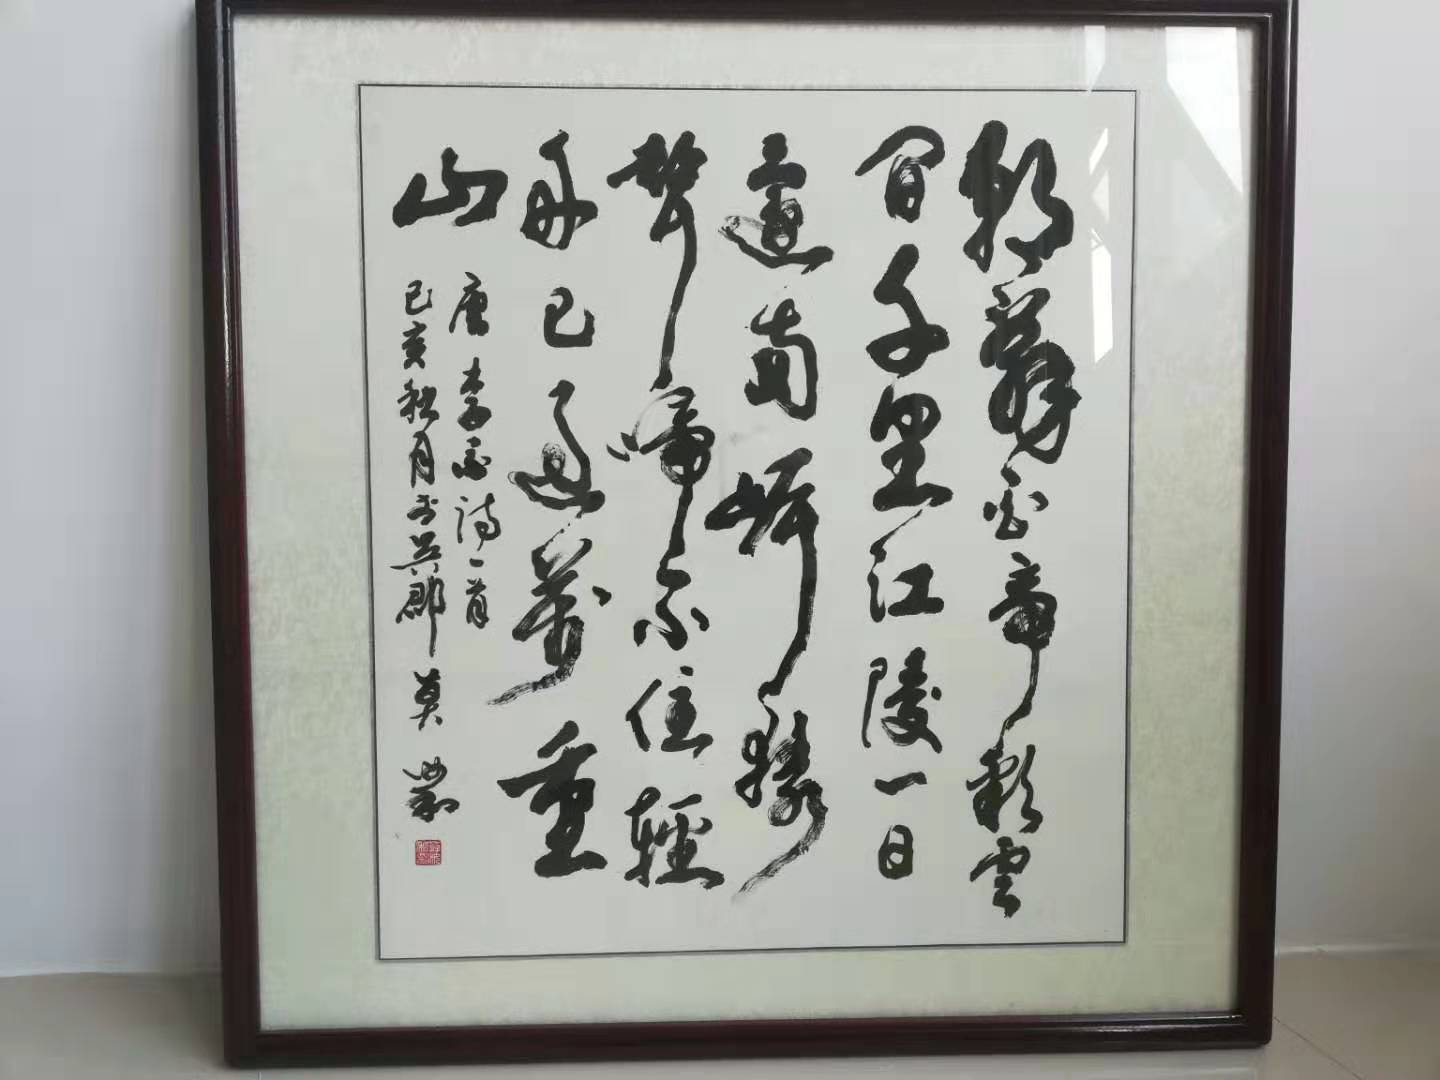 朝辭白帝彩雲
間千里江陵一日
還兩岸猿
聲啼不住輕
舟已過萬重
山
唐李白詩一首
己亥秋月於吳郡 莫